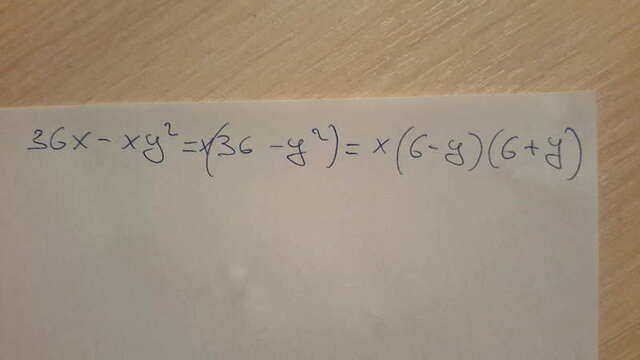 36x - xy² = x(36 - y²) = x(6-y)(6+y)